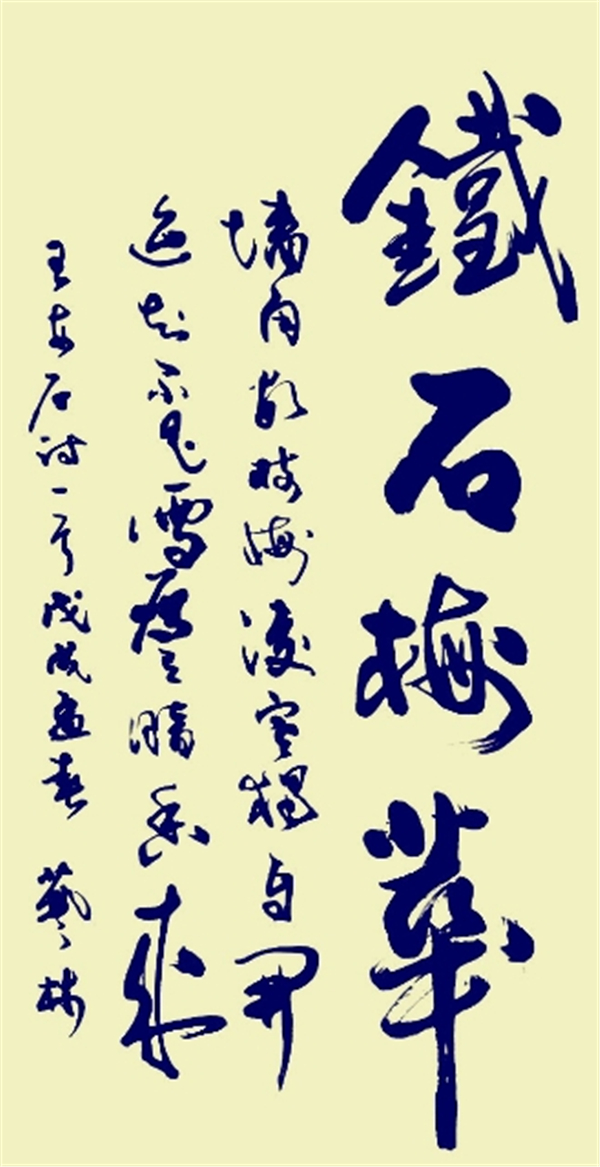 鐵石梅華
墻角數枝梅凌寒獨自開
遥知不是雪暗香來
王安石詩一首戊戌春 藝林